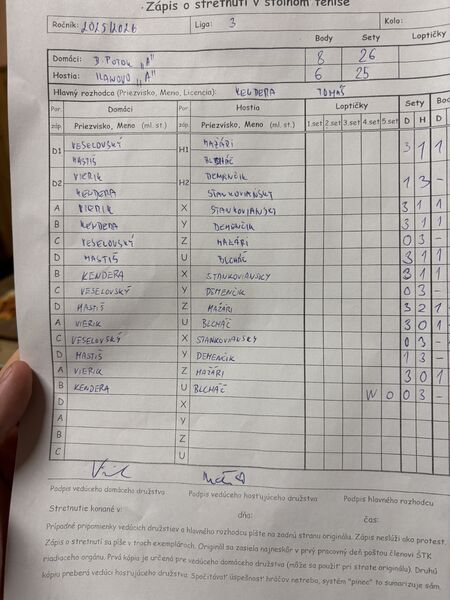 Zápis o stretnutí v stolnom tenise
Ročník: 2025/2026 Liga: 3 Kolo:
Body Sety Loptičky
Domáci: B. POTOK „A" 8 26
Hostia: ILANOVO „A" 6 25
Hlavný rozhodca (Priezvisko, Meno, Licencia): KENDERA TOMÁŠ
Por. Domáci Por. Hostia Loptičky Sety
záp. Priezvisko, Meno (ml. st.) záp. Priezvisko, Meno (ml. st.) 1.set 2.set 3.set 4.set 5.set D H D
D1 VESELOVSKÝ H1 MAŽÁRI 3 1 1
MASTIŠ BLCHÁČ
D2 VIERIK H2 DEMENČÍK 1 3 -
KENDERA STANKOVIANSKY
A VIERIK X STANKOVIANSKY 3 1 1
B KENDERA Y DEMENČÍK 3 1 1
C VESELOVSKÝ Z MAŽÁRI 0 3 -
D MASTIŠ U BLCHÁČ 3 1 1
B KENDERA X STANKOVIANSKY 3 1 1
C VESELOVSKÝ Y DEMENČÍK 0 3 -
D MASTIŠ Z MAŽÁRI 3 2 1
A VIERIK U BLCHÁČ 3 0 1
C VESELOVSKÝ X STANKOVIANSKY 0 3 -
D MASTIŠ Y DEMENČÍK 1 3 -
A VIERIK Z MAŽÁRI 3 0 1
B KENDERA U BLCHÁČ W O 0 3 -
D X
A Y
B Z
C U
Podpis vedúceho domáceho družstva Podpis vedúceho hosťujúceho družstva Podpis hlavného rozhodcu
Stretnutie konané v: dňa: čas:
Prípadné pripomienky vedúcich družstiev a hlavného rozhodcu píšte na zadnú stranu originálu. Zápis neslúži ako protest.
Zápis o stretnutí sa píše v troch exemplároch. Originál sa zasiela najneskôr v prvý pracovný deň poštou členovi ŠTK
riadiaceho orgánu. Prvá kópia je určená pre vedúceho domáceho družstva (môže sa použiť pri strate originálu). Druhú
kópiu preberá vedúci hosťujúceho družstva. Spočítavať úspešnosť hráčov netreba, systém "pinec" to sumarizuje sám.